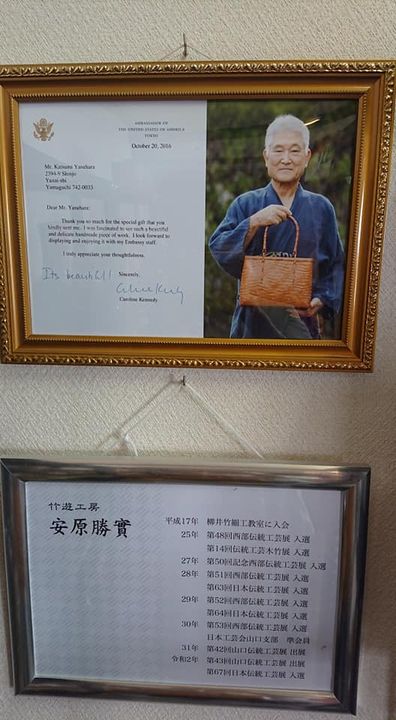 AMBASSADOR OF
THE UNITED STATES OF AMERICA
TOKYO
October 20, 2016
Mr. Katsumi Yasuhara
2394-9 Shinjo
Yanai-shi
Yamaguchi 742-0033
Dear Mr. Yasuhara:
Thank you so much for the special gift that you
kindly sent me. I was fascinated to see such a beautiful
and delicate handmade piece of work. I look forward to
displaying and enjoying it with my Embassy staff.
I truly appreciate your thoughtfulness.
Sincerely,
Its beautiful!
Caroline Kennedy
竹遊工房
安原勝實
平成17年 柳井竹細工教室に入会
25年 第48回西部伝統工芸展 入選
第14回伝統工芸木竹展 入選
27年 第50回記念西部伝統工芸展 入選
28年 第51回西部伝統工芸展 入選
第63回日本伝統工芸展 入選
29年 第52回西部伝統工芸展 入選
第64回日本伝統工芸展 入選
30年 第53回西部伝統工芸展 入選
日本工芸会山口支部 準会員
31年 第42回山口伝統工芸展 出展
令和2年 第43回山口伝統工芸展 出展
第67回日本伝統工芸展 入選